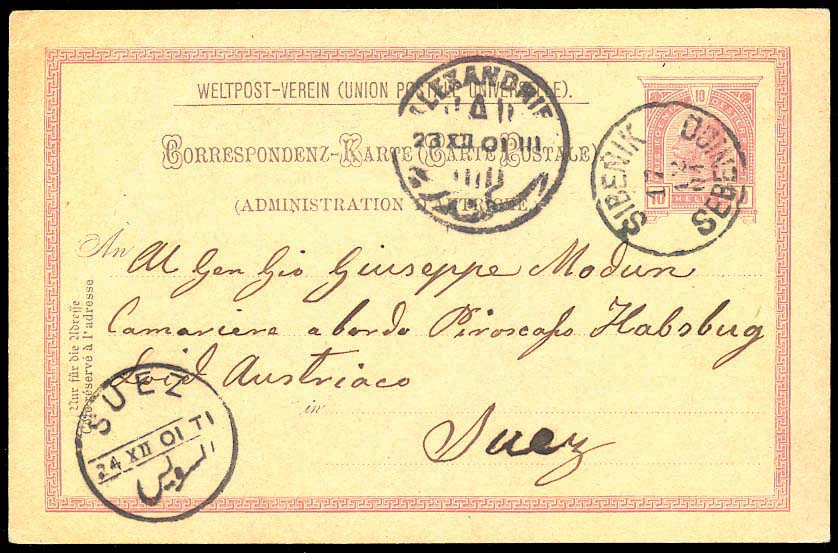 WELTPOST-VEREIN (UNION POSTALE UNIVERSELLE).
CORRESPONDENZ-KARTE (CARTE POSTALE)
(ADMINISTRATION D'AUTRICHE)
ALEXANDRIE
23 XII 01 III
10
10
HELLER
SIBENIK
SEBENICO
17
12
An
Al Gen Gio Giuseppe Modun
Camariere a bordo Piroscafo Habsbug
Loid Austriaco
in
Suez
Nur für die Adresse
Côté réservé à l'adresse
SUEZ
24 XII 01 T1
السويس